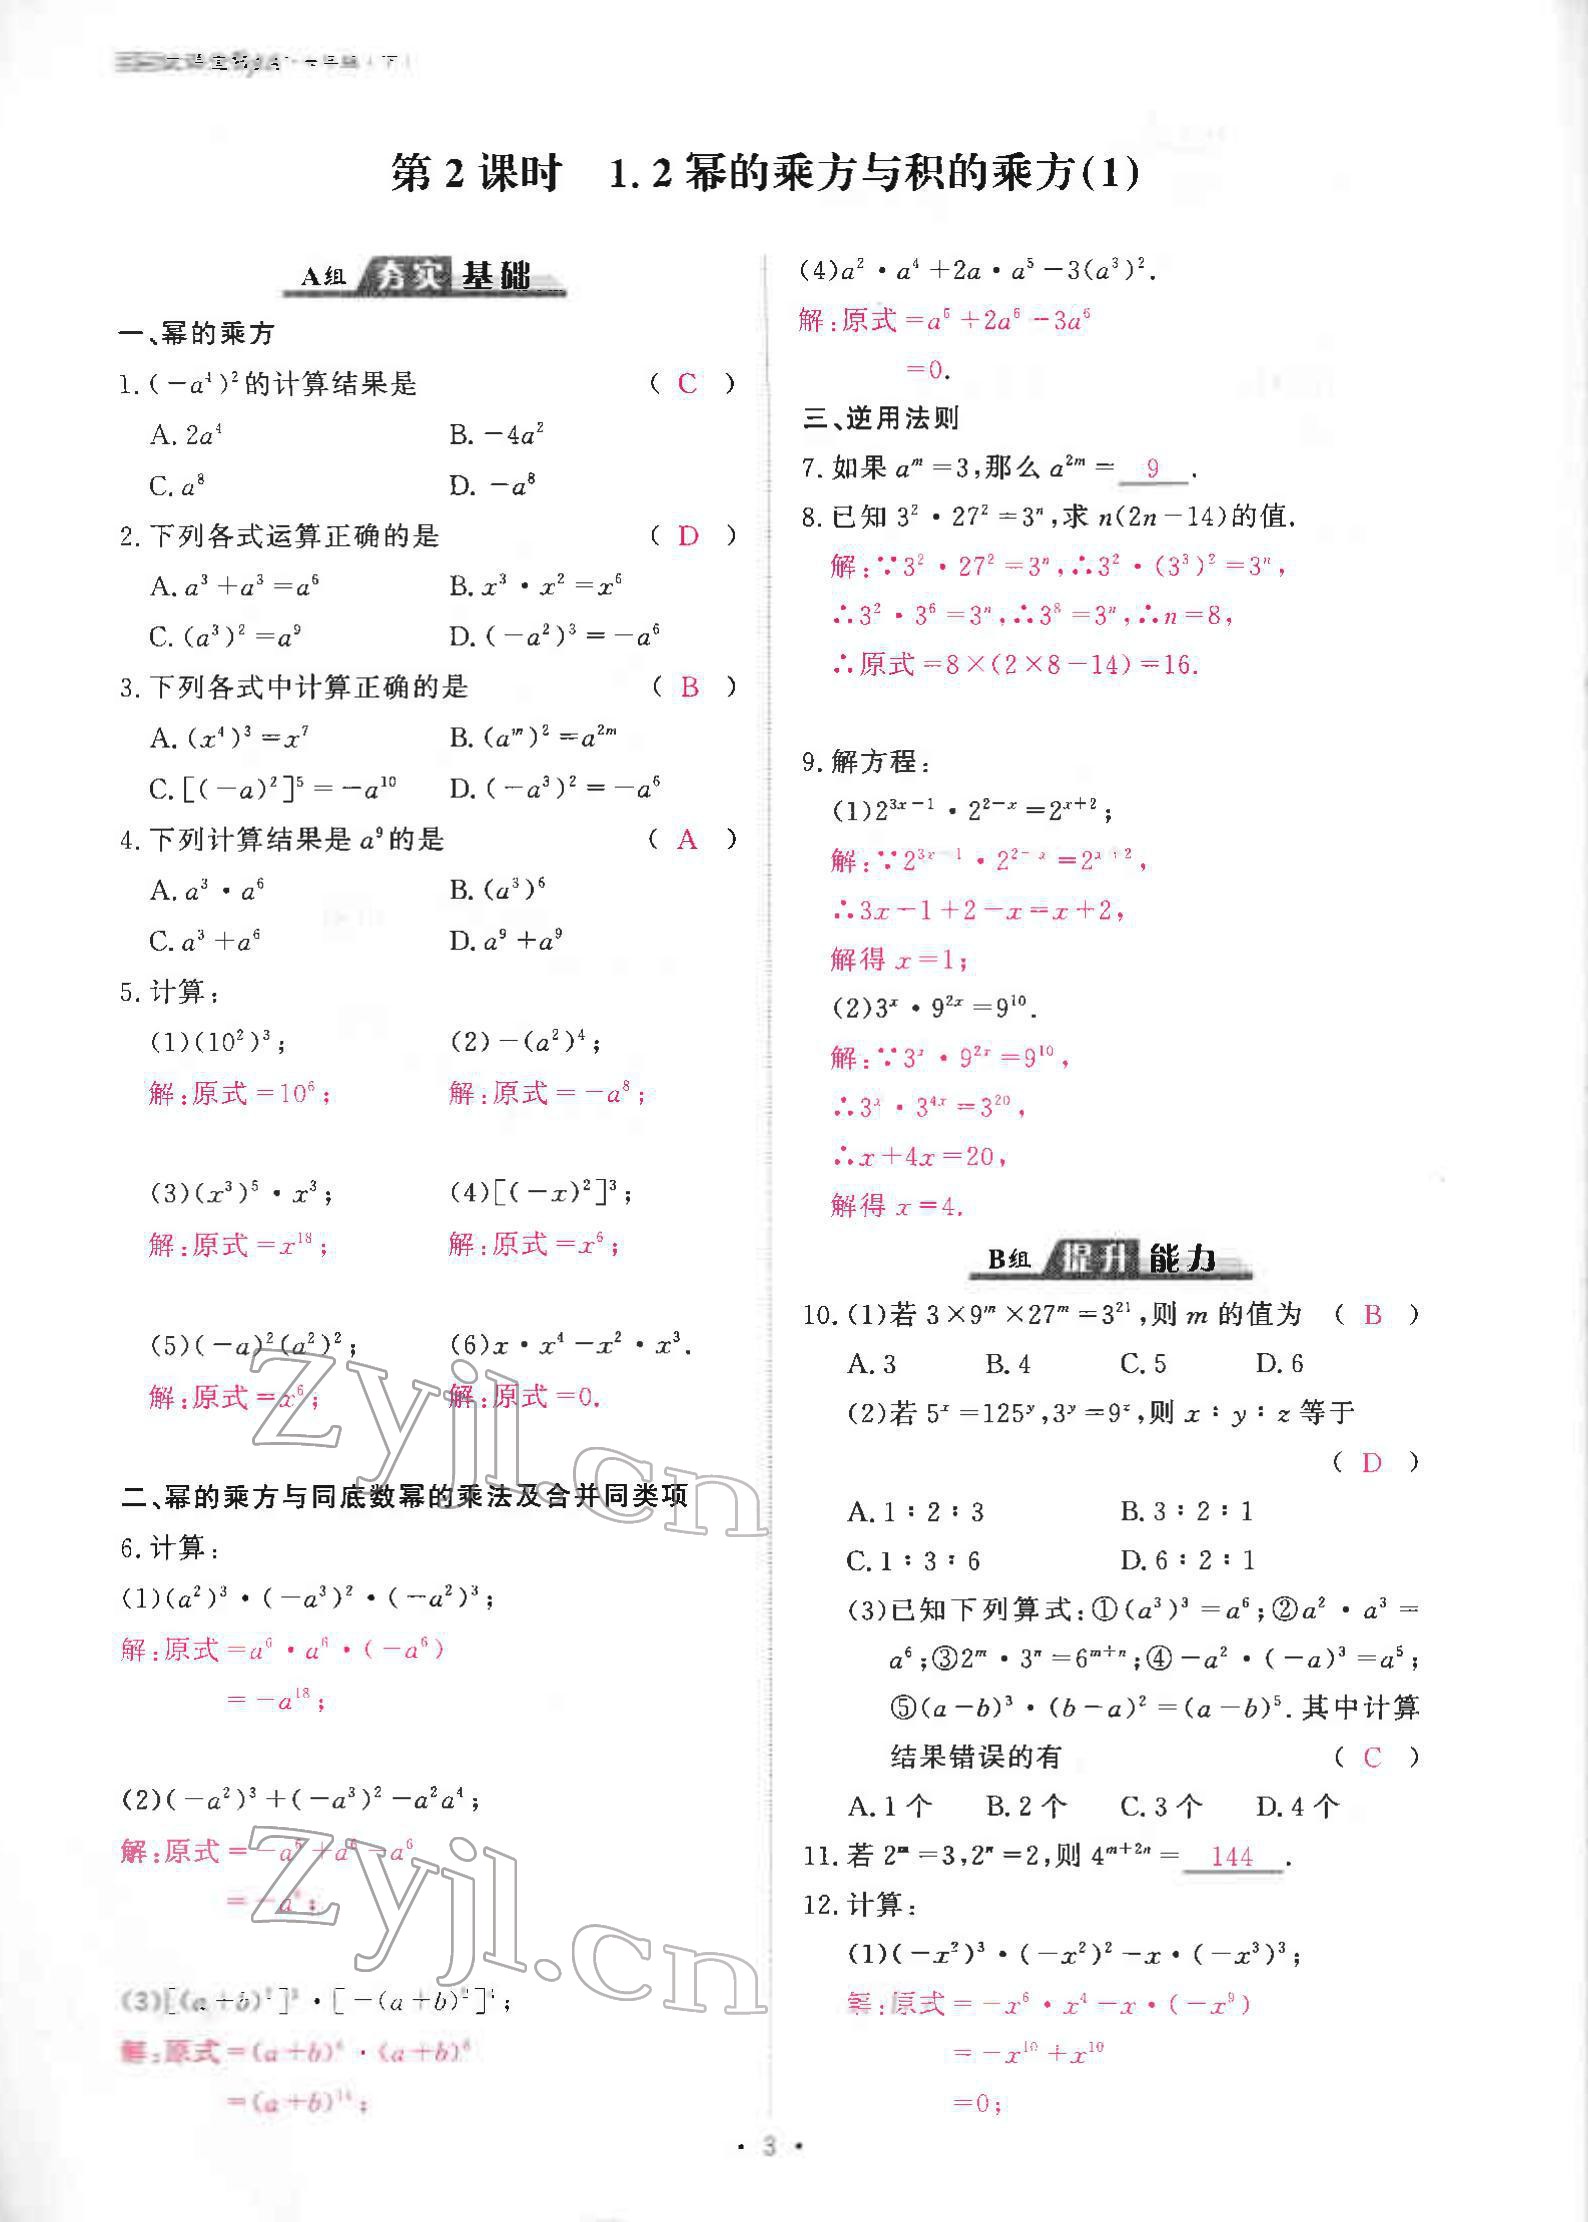 第2课时　1.2幂的乘方与积的乘方(1)
A组 夯实 基础
一、幂的乘方
1.(-a⁴)²的计算结果是 ( C )
A.2a⁴ B.-4a²
C.a⁸ D.-a⁸
2.下列各式运算正确的是 ( D )
A.a³+a³=a⁶ B.x³·x²=x⁶
C.(a³)²=a⁹ D.(-a²)³=-a⁶
3.下列各式中计算正确的是 ( B )
A.(x⁴)³=x⁷ B.(aᵐ)²=a²ᵐ
C.[(-a)²]⁵=-a¹⁰ D.(-a³)²=-a⁶
4.下列计算结果是a⁹的是 ( A )
A.a³·a⁶ B.(a³)⁶
C.a³+a⁶ D.a⁹+a⁹
5.计算:
(1)(10²)³; (2)-(a²)⁴;
解:原式=10⁶; 解:原式=-a⁸;
(3)(x³)⁵·x³; (4)[(-x)²]³;
解:原式=x¹⁸; 解:原式=x⁶;
(5)(-a)²(a²)²; (6)x·x⁴-x²·x³.
解:原式=x⁶; 解:原式=0.
二、幂的乘方与同底数幂的乘法及合并同类项
6.计算:
(1)(a²)³·(-a³)²·(-a²)³;
解:原式=a⁶·a⁶·(-a⁶)
=-a¹⁸;
(2)(-a²)³+(-a³)²-a²a⁴;
解:原式=-a⁶+a⁶-a⁶
=-a⁶;
解:原式=
(4)a²·a⁴+2a·a⁵-3(a³)².
解:原式=a⁶+2a⁶-3a⁶
=0.
三、逆用法则
7.如果aᵐ=3,那么a²ᵐ=9.
8.已知3²·27²=3ⁿ,求n(2n-14)的值.
解:∵3²·27²=3ⁿ,∴3²·(3³)²=3ⁿ,
∴3²·3⁶=3ⁿ,∴3⁸=3ⁿ,∴n=8,
∴原式=8×(2×8-14)=16.
9.解方程:
(1)2³ˣ⁻¹·2²⁻ˣ=2ˣ⁺²;
解:∵2³ˣ⁻¹·2²⁻ˣ=2ˣ⁺²,
∴3x-1+2-x=x+2,
解得x=1;
(2)3ˣ·9²ˣ=9¹⁰.
解:∵3ˣ·9²ˣ=9¹⁰,
∴3ˣ·3⁴ˣ=3²⁰,
∴x+4x=20,
解得x=4.
B组 提升 能力
10.(1)若3×9ᵐ×27ᵐ=3²¹,则m的值为 ( B )
A.3 B.4 C.5 D.6
(2)若5ˣ=125ʸ,3ʸ=9ᶻ,则x∶y∶z等于
( D )
A.1∶2∶3 B.3∶2∶1
C.1∶3∶6 D.6∶2∶1
(3)已知下列算式:①(a³)³=a⁶;②a²·a³=
a⁶;③2ᵐ·3ⁿ=6ᵐ⁺ⁿ;④-a²·(-a)³=a⁵;
⑤(a-b)³·(b-a)²=(a-b)⁵.其中计算
结果错误的有 ( C )
A.1个 B.2个 C.3个 D.4个
11.若2ᵐ=3,2ⁿ=2,则4ᵐ⁺²ⁿ=144.
12.计算:
(1)(-x²)³·(-x²)²-x·(-x³)³;
解:原式=-x⁶·x⁴-x·(-x⁹)
=-x¹⁰+x¹⁰
=0;
·3·
Zyjl.cn
Zyjl.cn